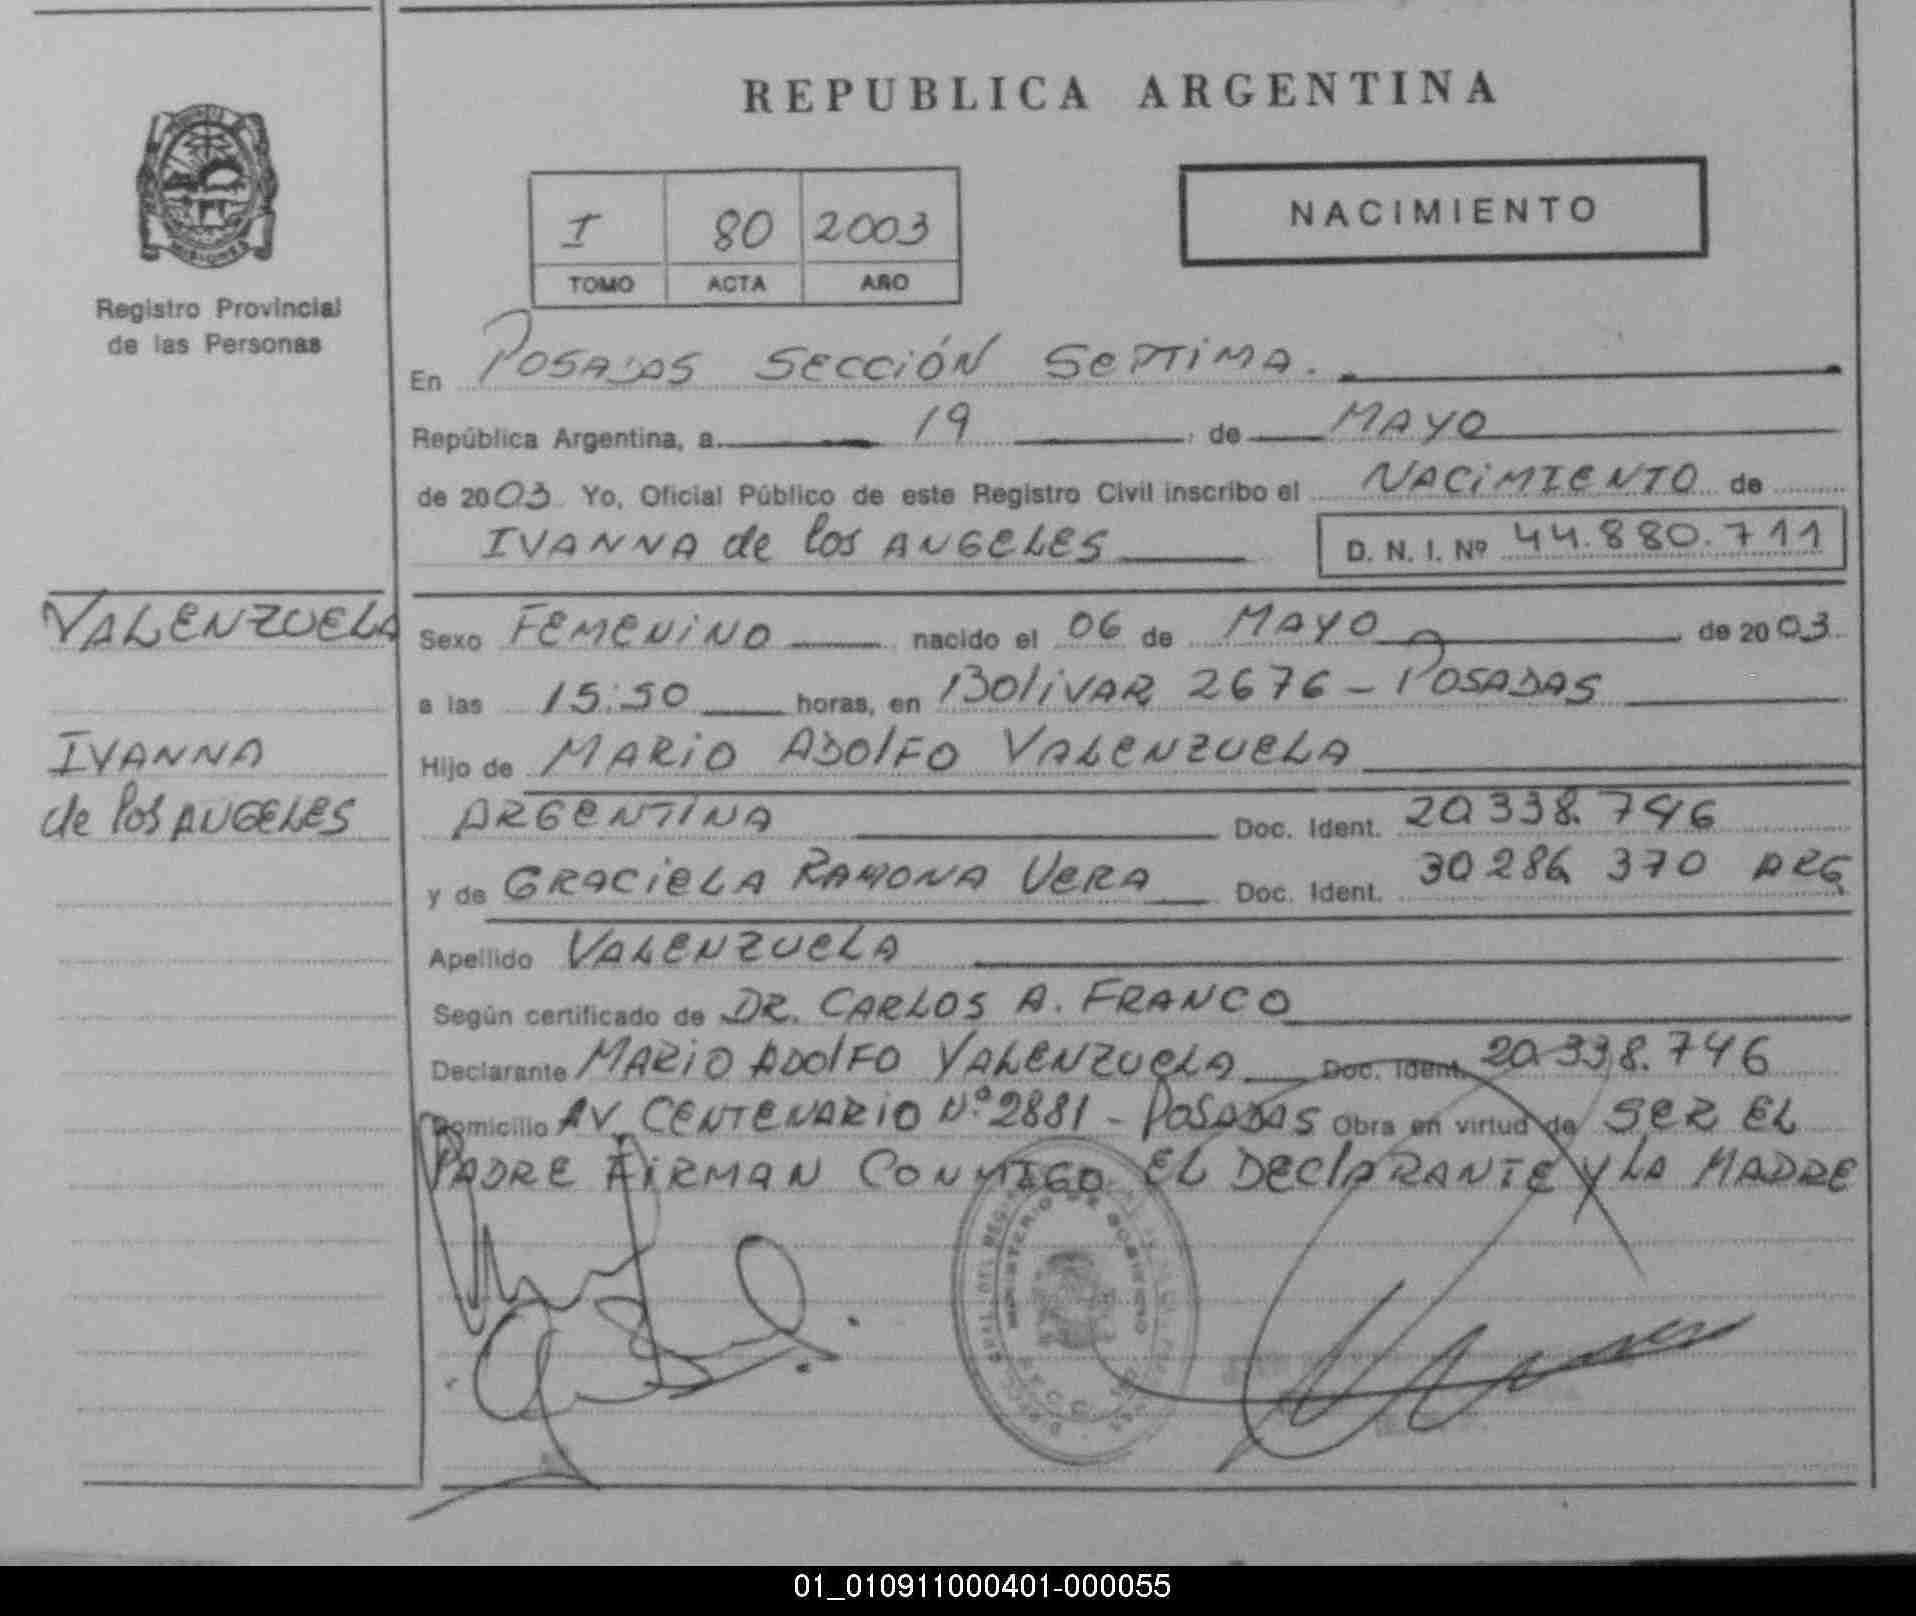 REPUBLICA ARGENTINA
MISIONES
Registro Provincial
de las Personas
I 80 2003
TOMO ACTA AÑO
NACIMIENTO
En POSADAS SECCIÓN SEPTIMA.
República Argentina, a 19 de MAYO
de 2003 Yo, Oficial Público de este Registro Civil inscribo el NACIMIENTO de
IVANNA de los ANGELES D. N. I. Nº 44.880.711
VALENZUELA
IVANNA
de los ANGELES
Sexo FEMENINO nacido el 06 de MAYO de 2003
a las 15:50 horas, en BOLIVAR 2676 - POSADAS
Hijo de MARIO ADOLFO VALENZUELA
ARGENTINA Doc. Ident. 20.338.746
y de GRACIELA RAMONA VERA Doc. Ident. 30.286.370 ARG
Apellido VALENZUELA
Según certificado de DR. CARLOS A. FRANCO
Declarante MARIO ADOLFO VALENZUELA Doc. Ident. 20.338.746
Domicilio AV. CENTENARIO Nº 2881 - POSADAS Obra en virtud de SER EL
PADRE FIRMAN CONMIGO EL DECLARANTE Y LA MADRE
MINISTERIO DE GOBIERNO
01_010911000401-000055